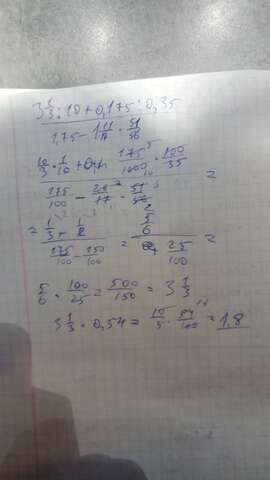 3 1/3 : 10 + 0,175 : 0,35
1,75 - 1 11/17 · 51/56
10/3 · 1/10 + 175/1000 · 100/35
175/100 - 28/17 · 51/56 =
= 1/3 + 1/2 = 5/6 =
175/100 - 150/100 25/100
5/6 · 100/25 = 500/150 = 3 1/3
3 1/3 · 0,54 = 10/3 · 54/100 = 1,8